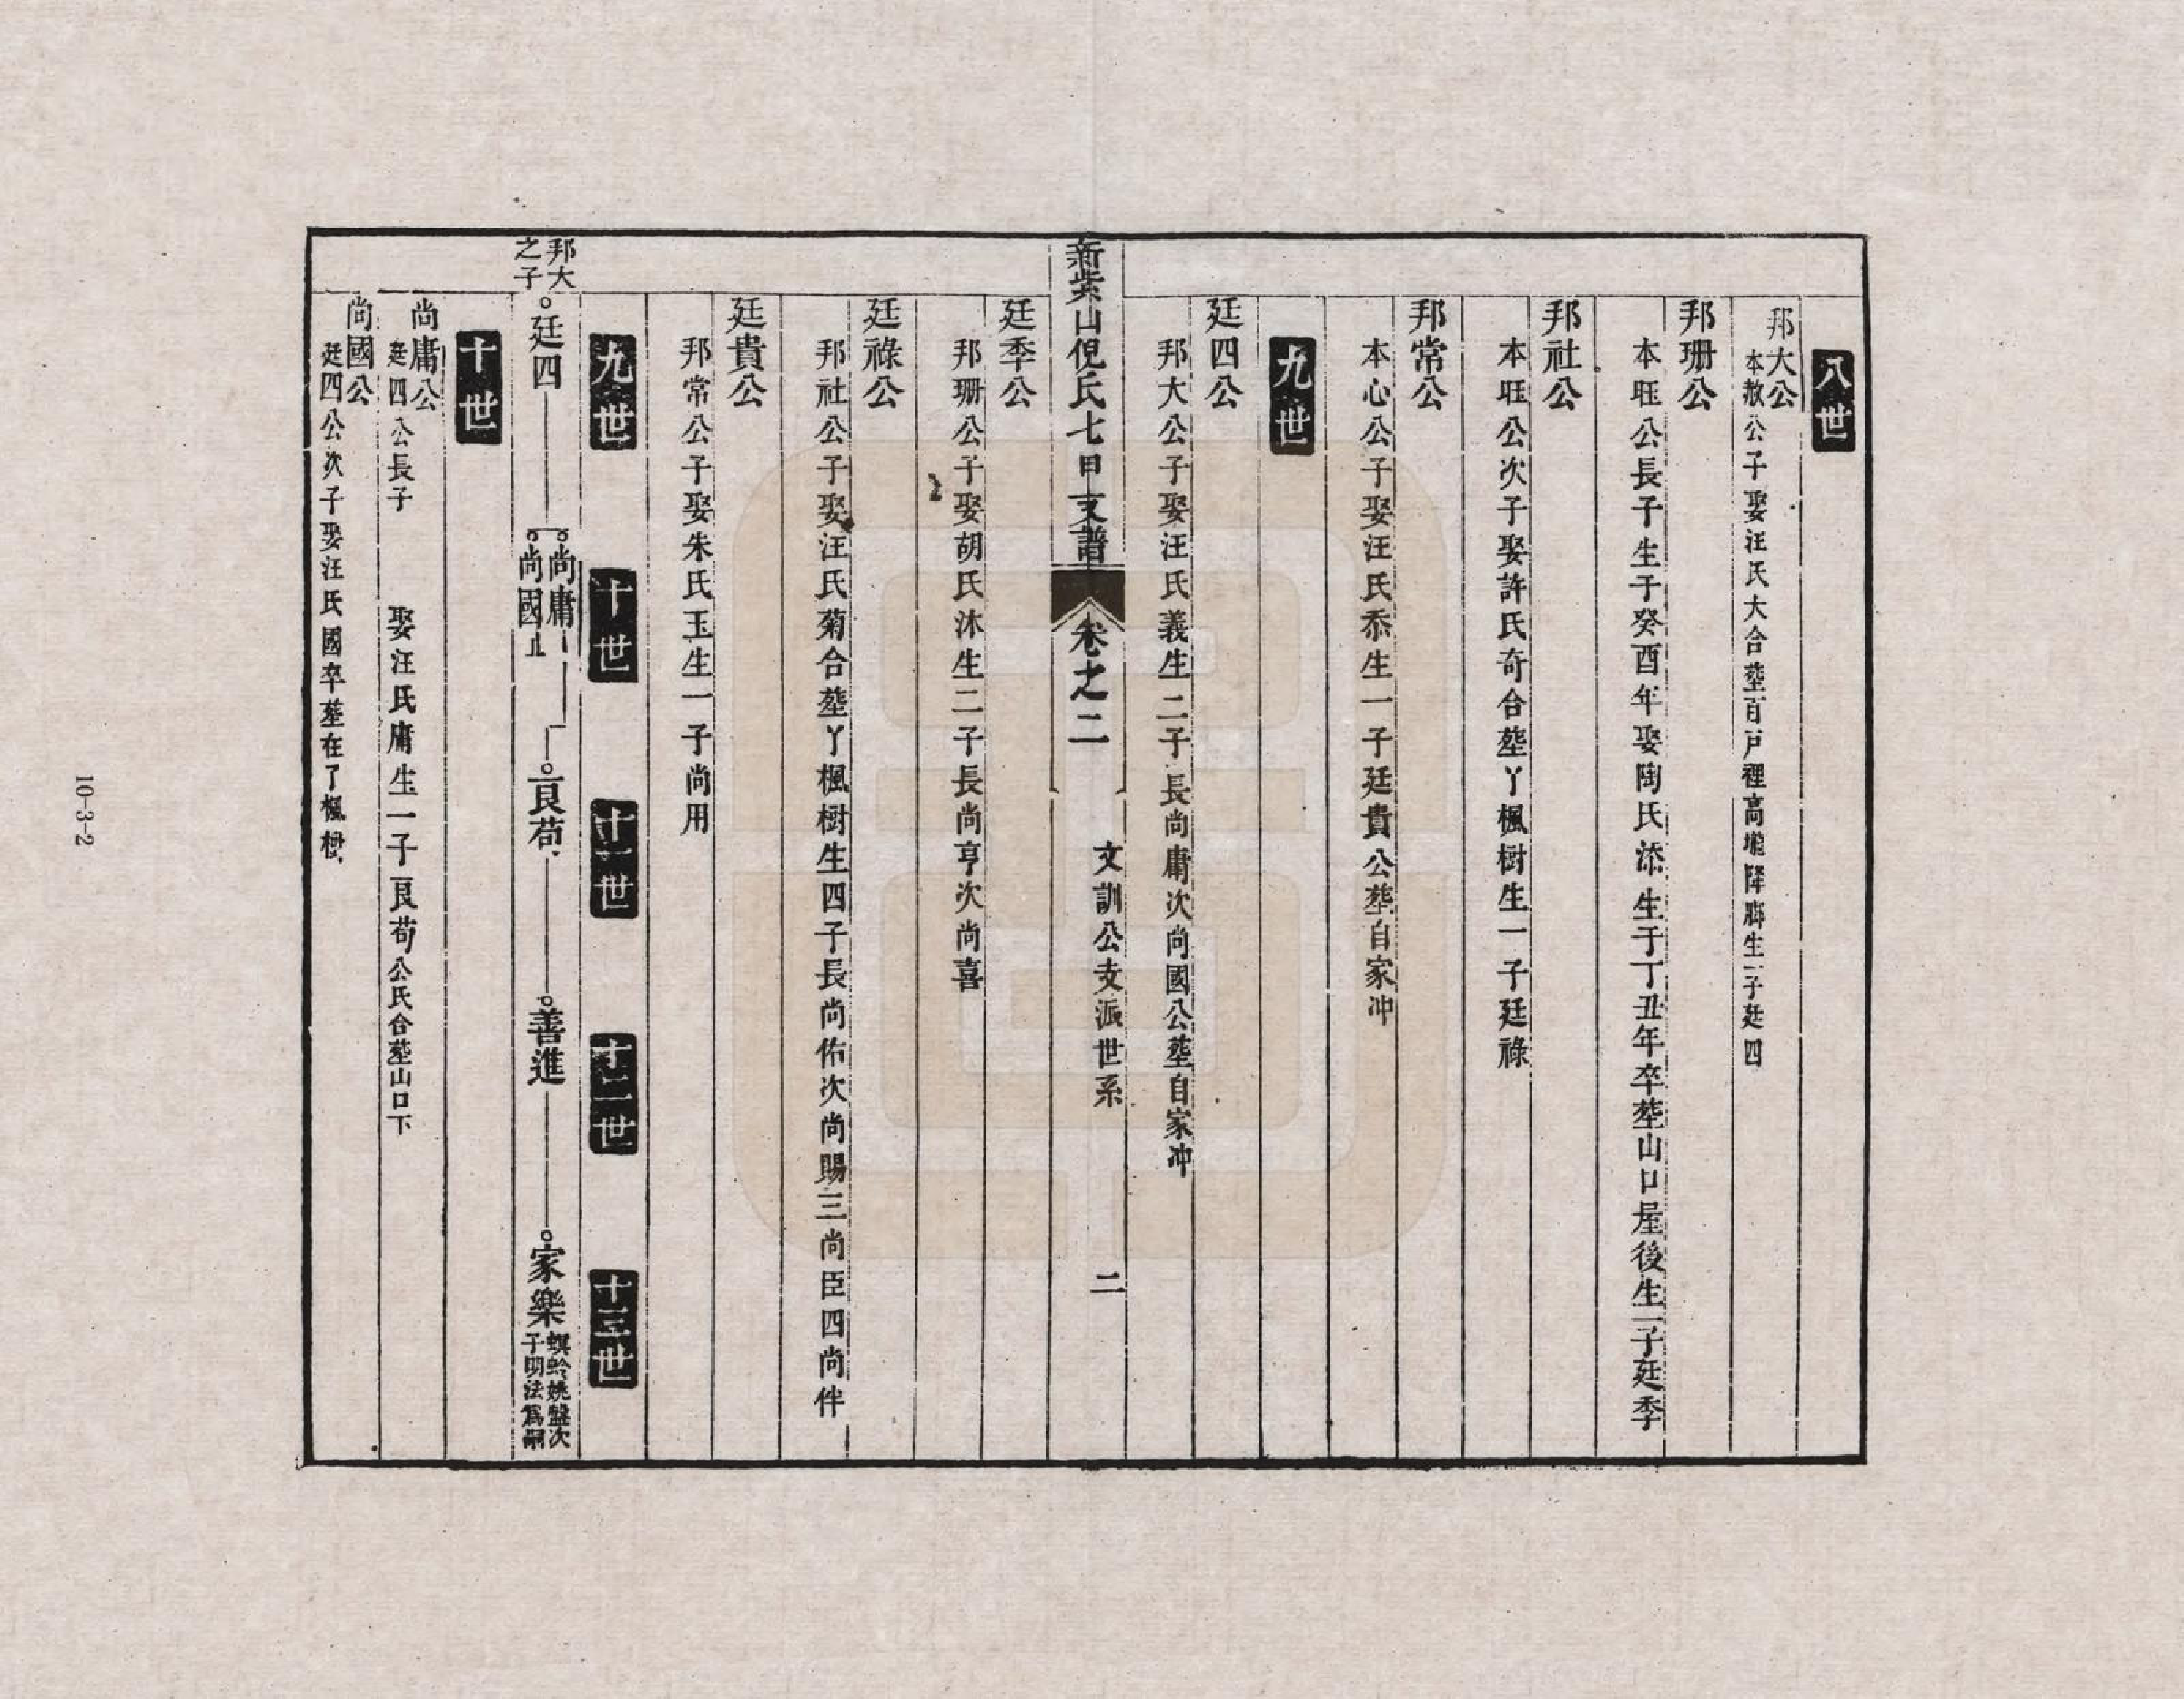 八世
邦大公
本敖公子娶汪氏大合塟百戶裡高壠降脚生一子廷四
邦珊公
本旺公長子生于癸酉年娶陶氏添生于丁丑年卒塟山口屋後生一子廷季
邦社公
本旺公次子娶許氏奇合塟丫楓樹生一子廷祿
邦常公
本心公子娶汪氏忝生一子廷貴公塟自家冲
九世
廷四公
邦大公子娶汪氏義生二子長尚庸次尚國公塟自家冲
新紫山倪氏七甲支譜
卷之二
文訓公支派世系
二
廷季公
邦珊公子娶胡氏沐生二子長尚亨次尚喜
廷祿公
邦社公子娶汪氏菊合塟丫楓樹生四子長尚佑次尚賜三尚臣四尚伴
廷貴公
邦常公子娶朱氏玉生一子尚用
九世 十世 十一世 十二世 十三世
邦大之子
廷四
尚庸
尚國止
艮苟
善進
家樂
螟蛉姚盤次
子明法爲嗣
十世
尚庸公
廷四公長子 娶汪氏庸生一子艮苟公氏合塟山口下
尚國公
廷四公次子娶汪氏國卒塟在了楓樹
10-3-2